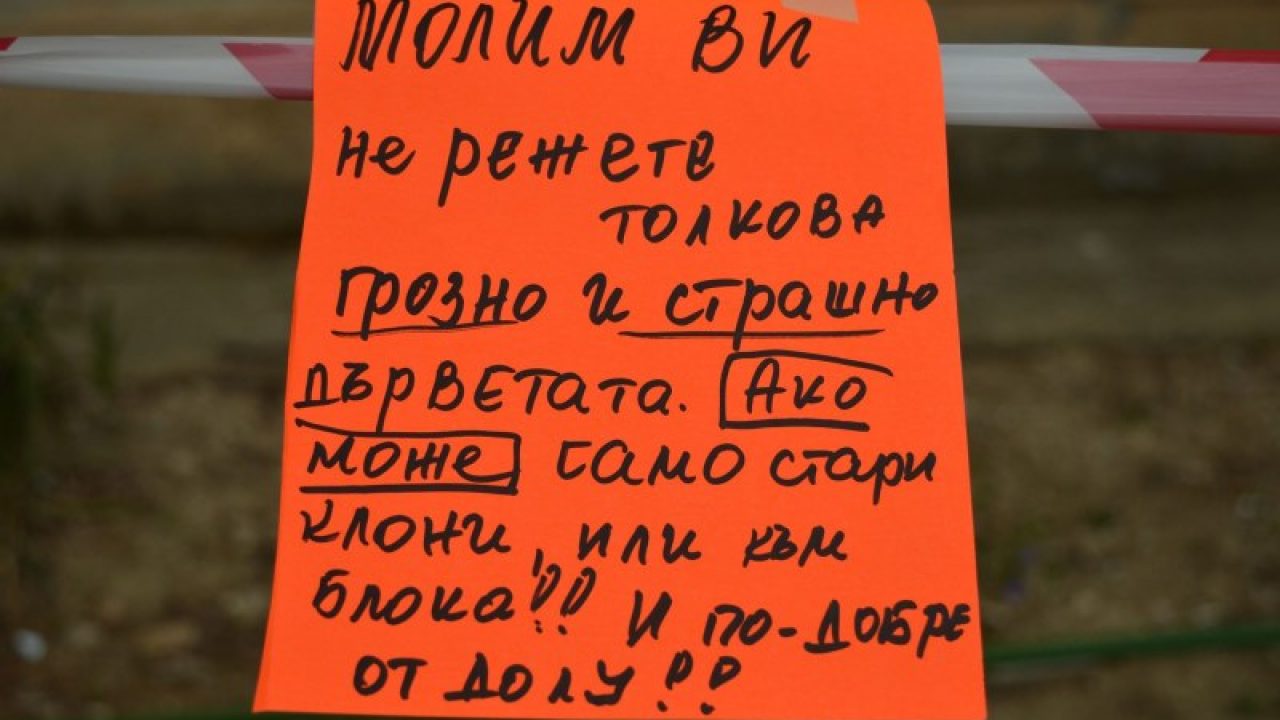 МОЛИМ ВИ
не режете
толкова
грозно и страшно
дърветата. Ако
може само стари
клони, или към
блока!! И по-добре
от долу!!